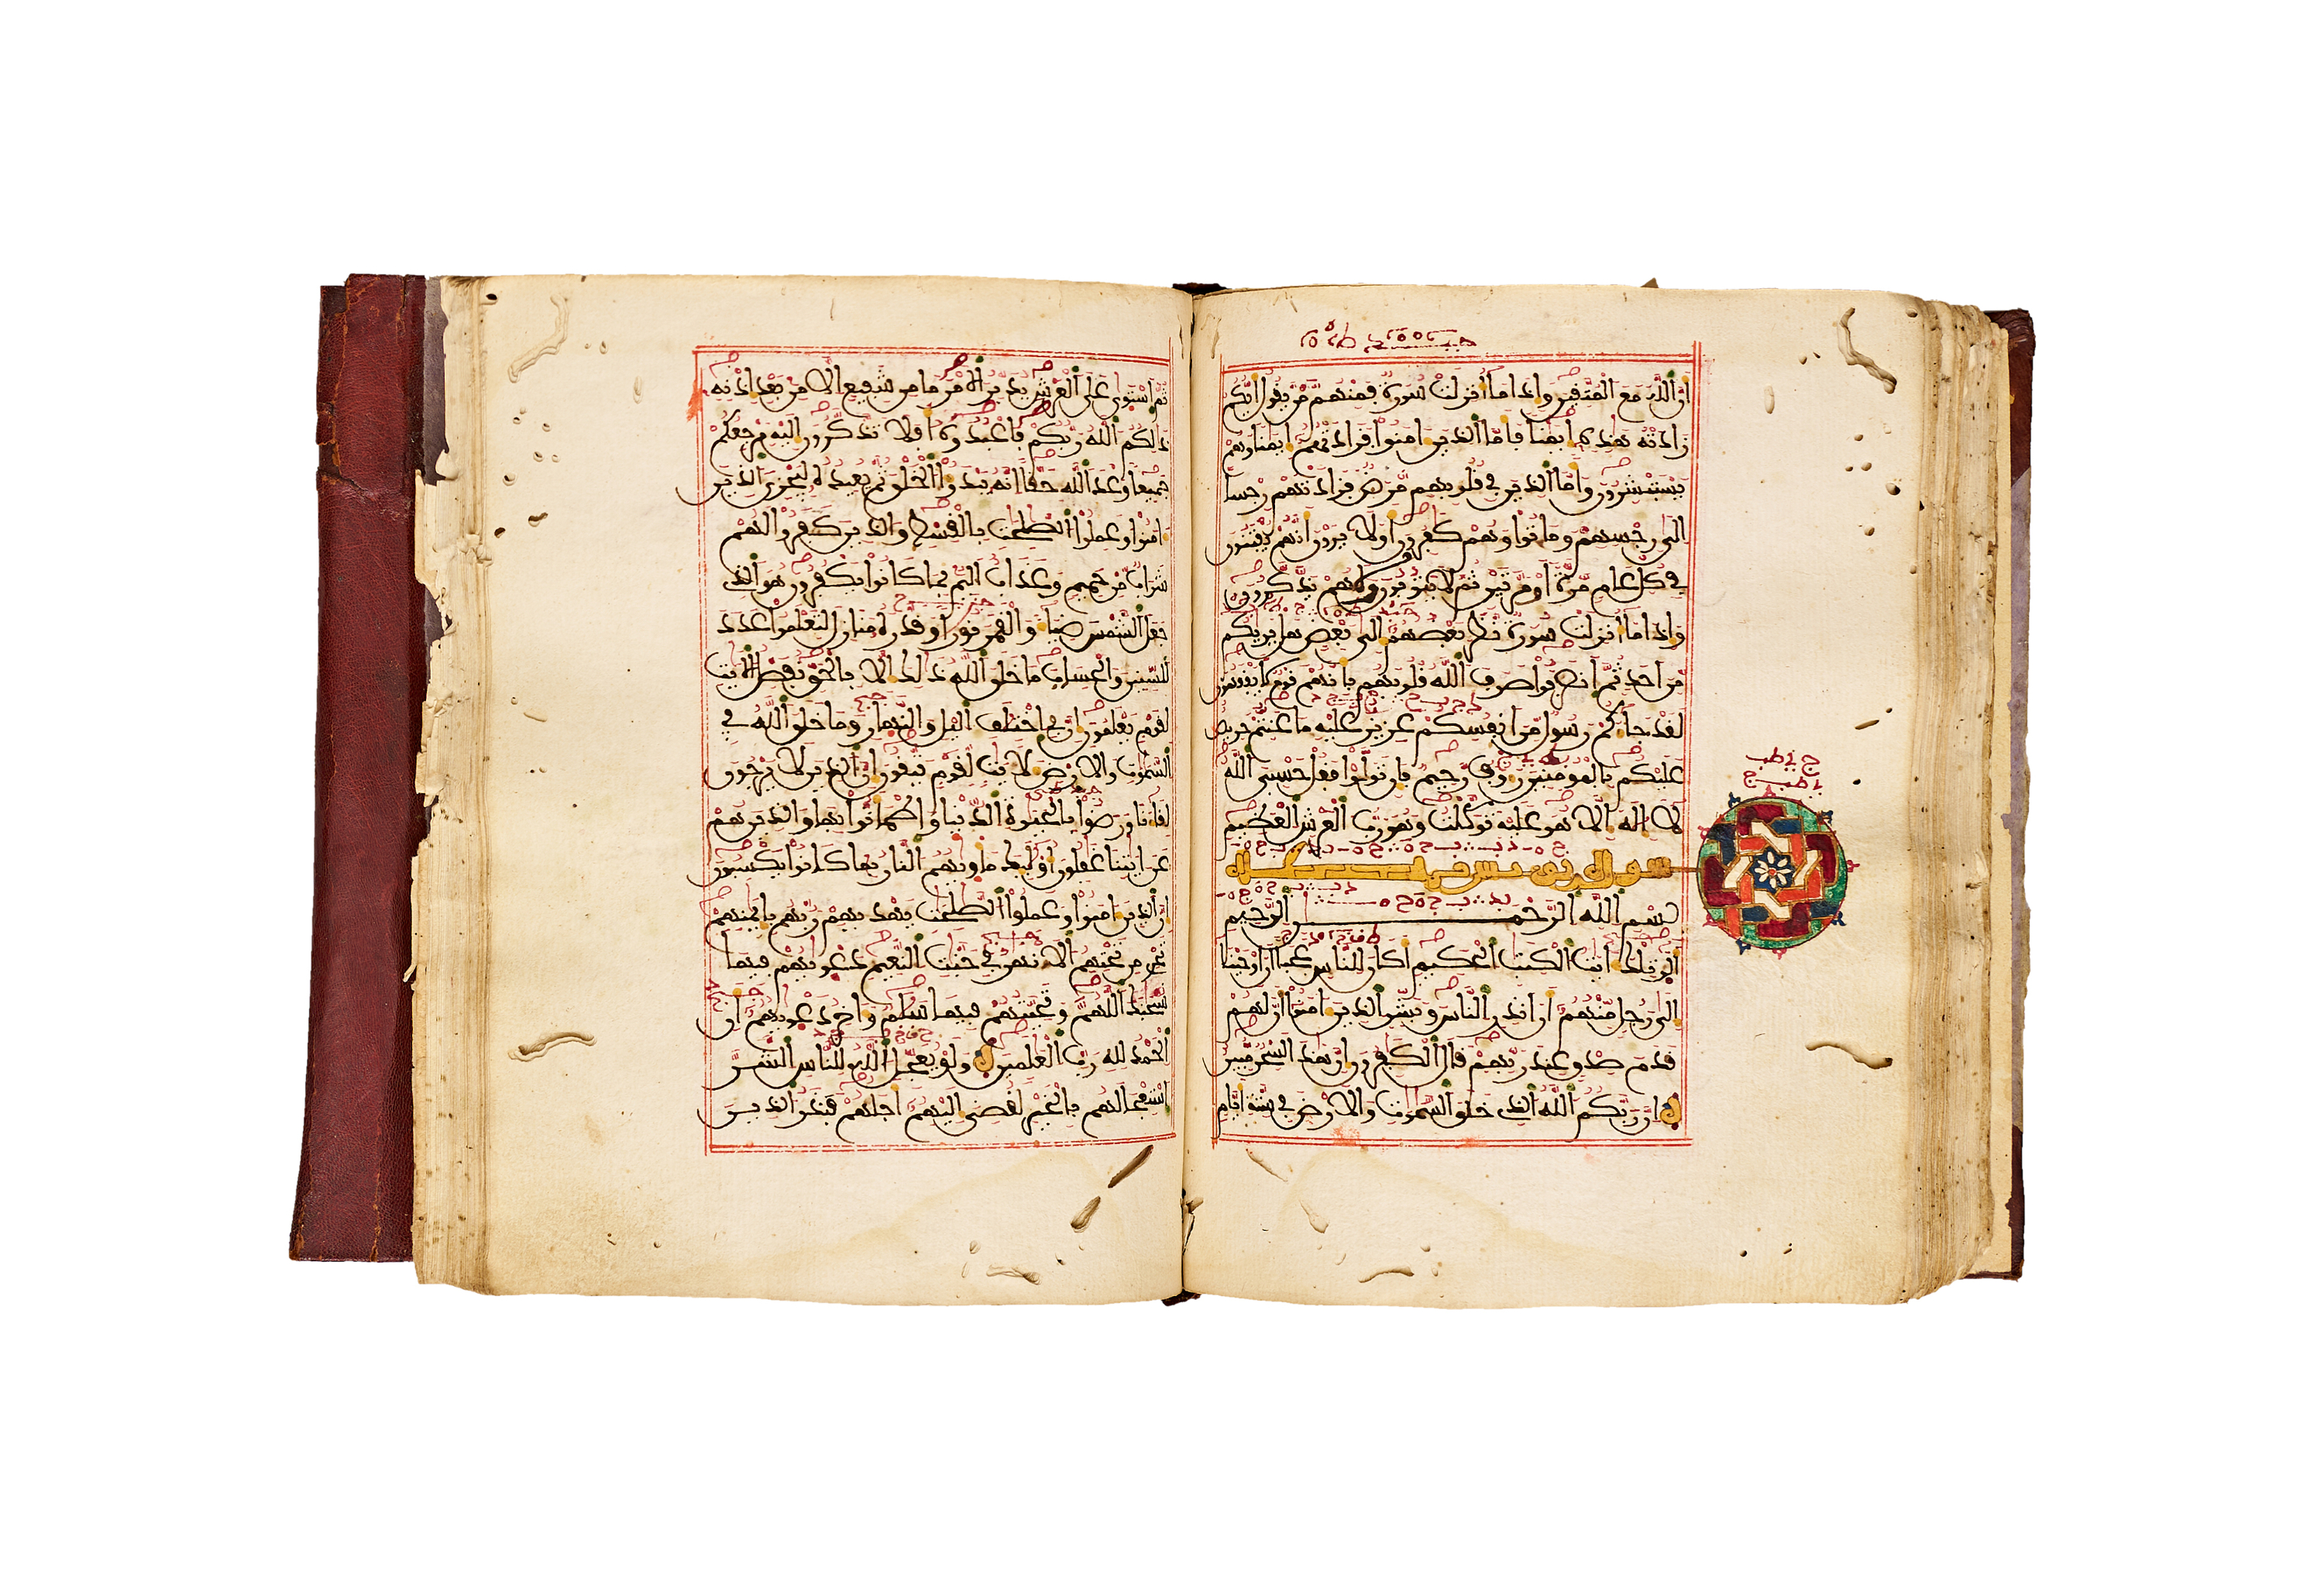 أن الله مع المتقين وإذا ما أنزلت سورة فمنهم من يقول أيكم
زادته هذه إيمنا فأما الذين ءامنوا فزادتهم إيمنا وهم
يستبشرون وأما الذين في قلوبهم مرض فزادتهم رجسا
إلى رجسهم وماتوا وهم كفرون أولا يرون أنهم يفتنون
في كل عام مرة أو مرتين ثم لا يتوبون ولا هم يذكرون
وإذا ما أنزلت سورة نظر بعضهم إلى بعض هل يريكم
من أحد ثم انصرفوا صرف الله قلوبهم بأنهم قوم لا يفقهون
لقد جاءكم رسول من أنفسكم عزيز عليه ما عنتم حريص
عليكم بالمومنين رءوف رحيم فإن تولوا فقل حسبي الله
لا إله إلا هو عليه توكلت وهو رب العرش العظيم
يونس
بسم الله الرحمن الرحيم
الر تلك ءايت الكتب الحكيم أكان للناس عجبا أن أوحينا
إلى رجل منهم أن أنذر الناس وبشر الذين ءامنوا أن لهم
قدم صدق عند ربهم قال الكفرون إن هذا لسحر مبين
إن ربكم الله الذي خلق السموت والأرض في ستة أيام
ثم استوى على العرش يدبر الأمر ما من شفيع إلا من بعد إذنه
ذلكم الله ربكم فاعبدوه أفلا تذكرون إليه مرجعكم
جميعا وعد الله حقا إنه يبدؤا الخلق ثم يعيده ليجزي الذين
ءامنوا وعملوا الصلحت بالقسط والذين كفروا لهم
شراب من حميم وعذاب أليم بما كانوا يكفرون هو الذي
جعل الشمس ضياء والقمر نورا وقدره منازل لتعلموا عدد
السنين والحساب ما خلق الله ذلك إلا بالحق نفصل الآيت
لقوم يعلمون إن في اختلف اليل والنهار وما خلق الله في
السموت والأرض لآيت لقوم يتقون إن الذين لا يرجون
لقاءنا ورضوا بالحيوة الدنيا واطمأنوا بها والذين هم
عن ءايتنا غفلون أوليك مأويهم النار بما كانوا يكسبون
إن الذين ءامنوا وعملوا الصلحت يهديهم ربهم بإيمنهم
تجري من تحتهم الأنهر في جنت النعيم دعويهم فيها
سبحنك اللهم وتحيتهم فيها سلم وءاخر دعويهم أن
الحمد لله رب العلمين ولو يعجل الله للناس الشر
استعجالهم بالخير لقضي إليهم أجلهم فنذر الذين